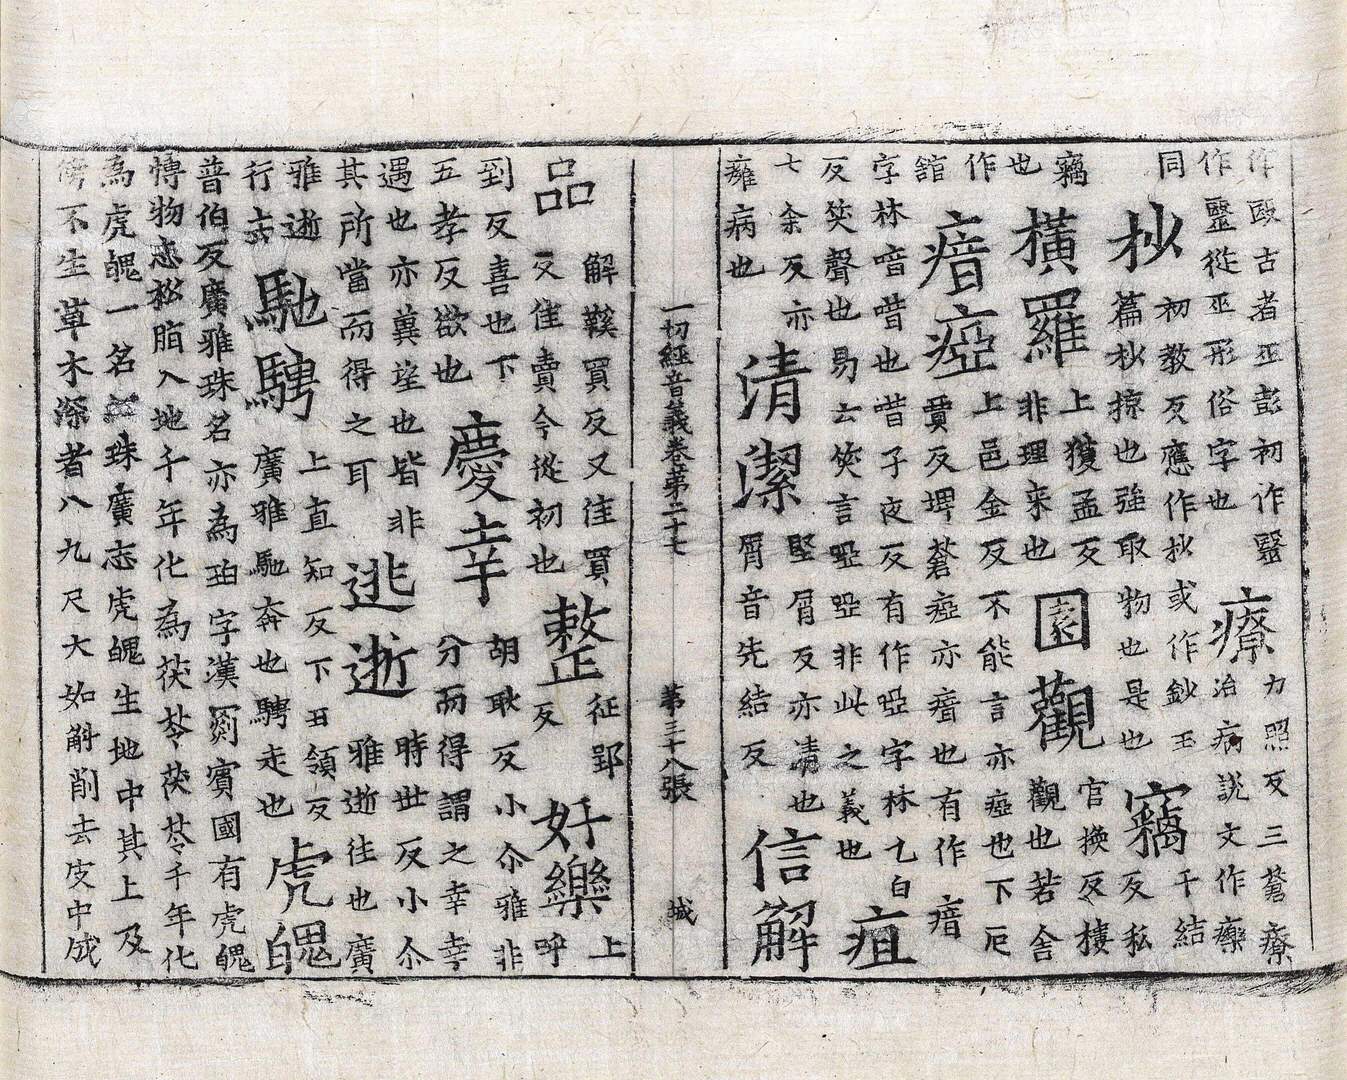 作毆古者巫彭初作毉
作毉從巫形俗字也
療
力照反三蒼療
治病說文作𤻲
同
抄
初教反應作抄或作鈔玉
篇抄掠也強取物也是也
竊
千結
反私
竊
也
橫羅
上獲孟反
非理来也
園觀
官換反樓
觀也若舍
作
舘
瘖瘂
上邑金反不能言亦瘂也下厄
賈反埤蒼瘂亦瘖也有作瘖
字林喑唶也唶子夜反有作啞字林乙白
反笑聲也易云笑言啞啞非此之義也
疽
七余反亦
癰病也
清潔
堅屑反亦清也
屑音先結反
信解
一切經音義卷第二十七 第三十八張 城
品
解買反又佳買
反佳賣今從初也
整
征郢
反
好樂
上
呼
到反喜也下
五孝反欲也
慶幸
胡耿反小尒雅非
分而得謂之幸幸
遇也亦冀望也皆非
其所當而得之耳
逃逝
時世反小尒
雅逝往也廣
雅逝
行去
馳騁
上直知反下丑領反
廣雅馳奔也騁走也
虎魄
普伯反廣雅珠名亦為珀字漢罽賓國有虎魄
博物志松脂入地千年化為茯苓茯苓千年化
為虎魄一名江珠廣志虎魄生地中其上及
傍不生草木深者八九尺大如斛削去皮中成